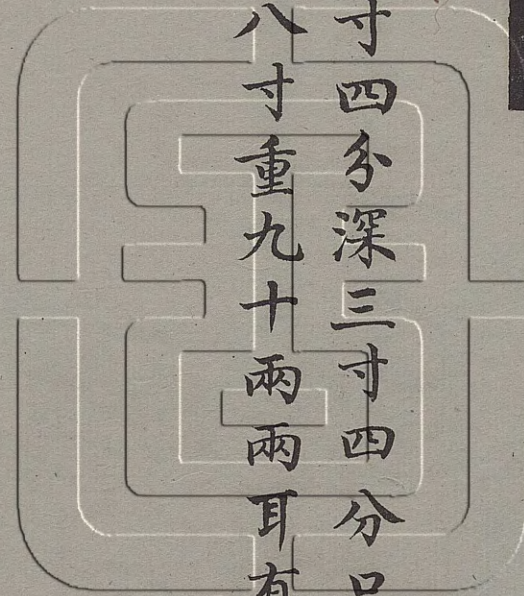 寸四分深三寸四分口
八寸重九十兩兩耳有